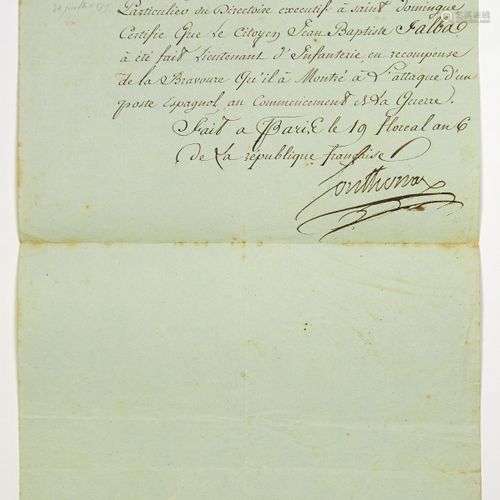 Particulier du Directoire executif à saint Domingue
Certifie Que le Citoyen Jean Baptiste
à été fait Lieutenant d'Infanterie en recompense
de la Bravoure Qu'il à Montré à L'attaque d'un
poste Espagnol au Commencement de La Guerre.
Fait a Paris le 19 floreal an 6
de La république française
Sonthonax